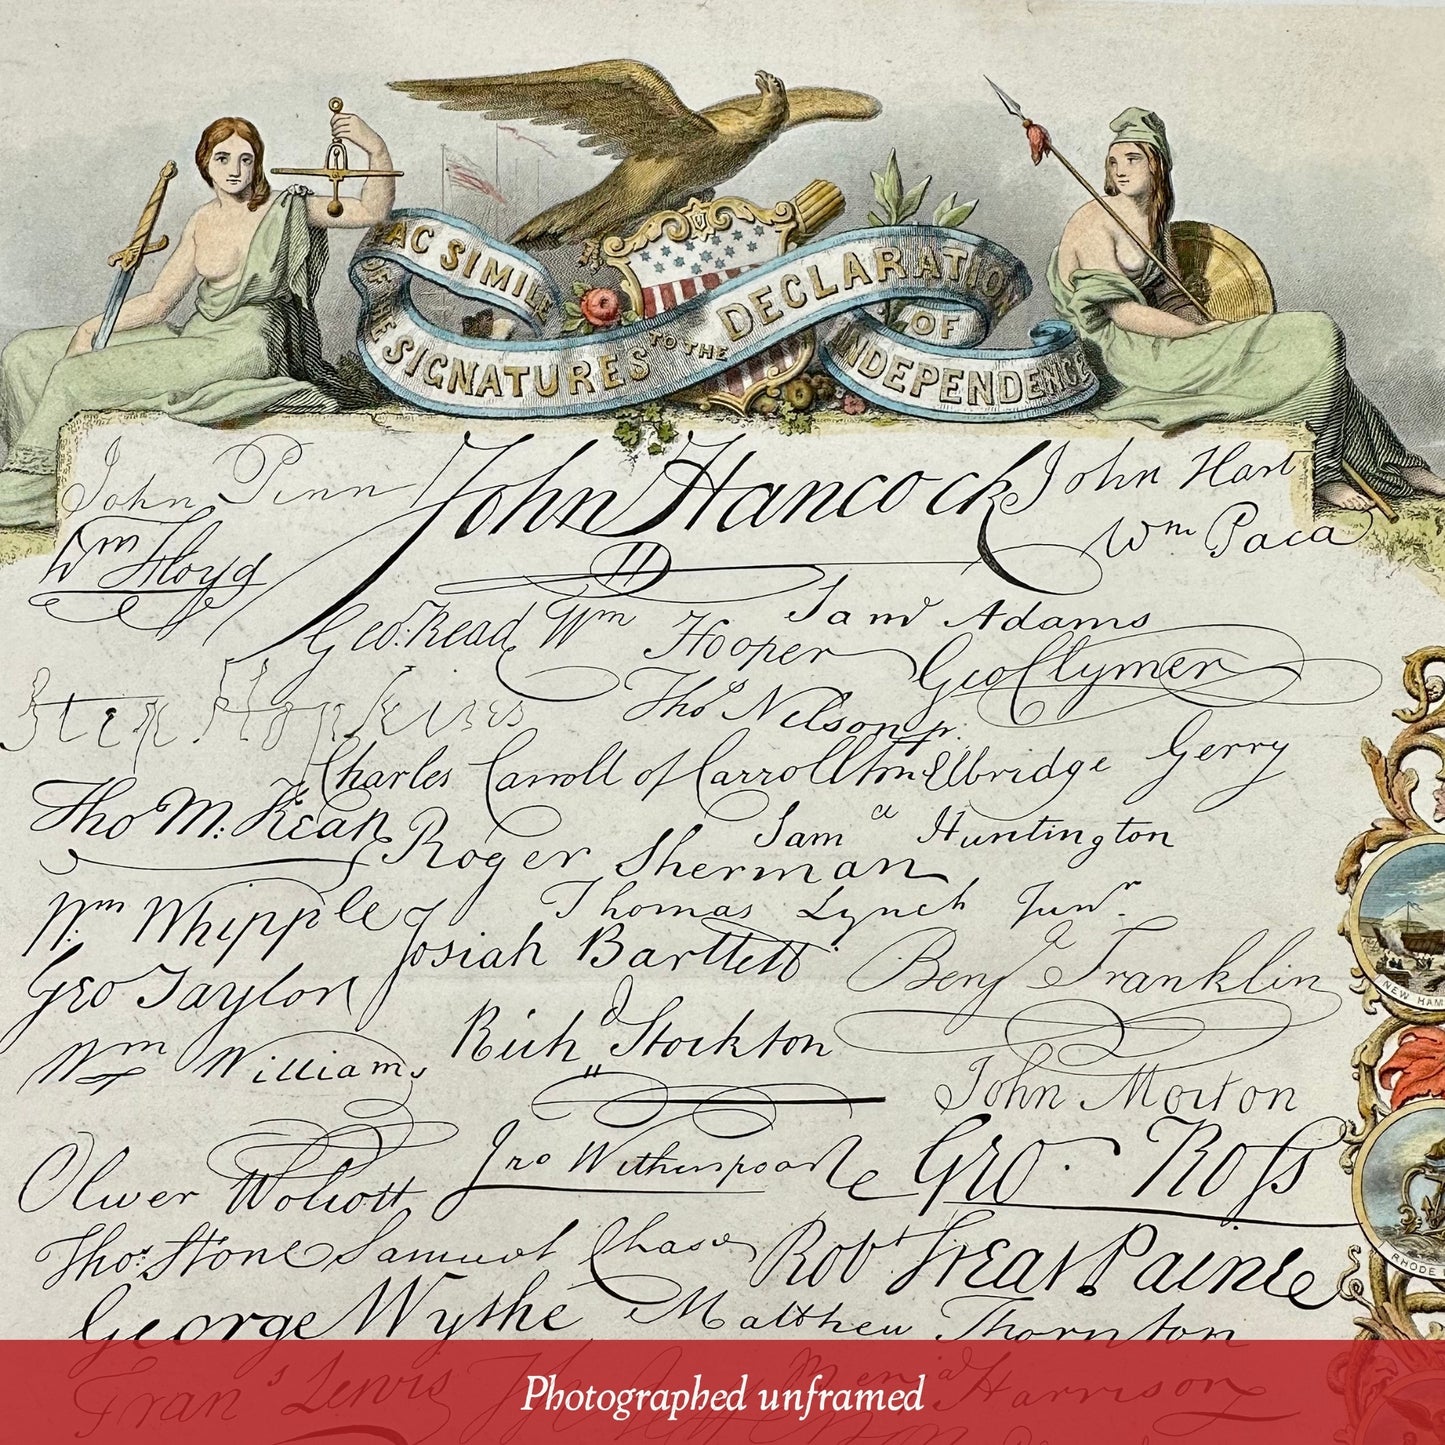 FAC SIMILE
OF THE SIGNATURES TO THE DECLARATION
OF
INDEPENDENCE
John Penn John Hancock John Hart
Wm Floyd Wm Paca
Geo. Read Wm Hooper Saml Adams
Geo Clymer
Step Hopkins Thos Nelson jr.
Charles Carroll of Carrollton Elbridge Gerry
Tho M: Kean Saml Huntington
Roger Sherman
Wm Whipple Thomas Lynch Junr.
Josiah Bartlett Benj Franklin
Geo Taylor
Richd Stockton
Wm Williams John Morton
Jno Witherspoon Geo. Ross
Oliver Wolcott
Thos. Stone Samuel Chase Robt Treat Paine
George Wythe Matthew Thornton
Frans Lewis Harrison
NEW HAM
RHODE
Photographed unframed